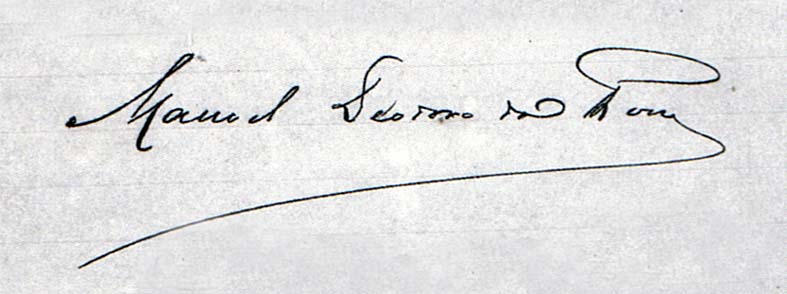 Manoel Deodoro da Fon